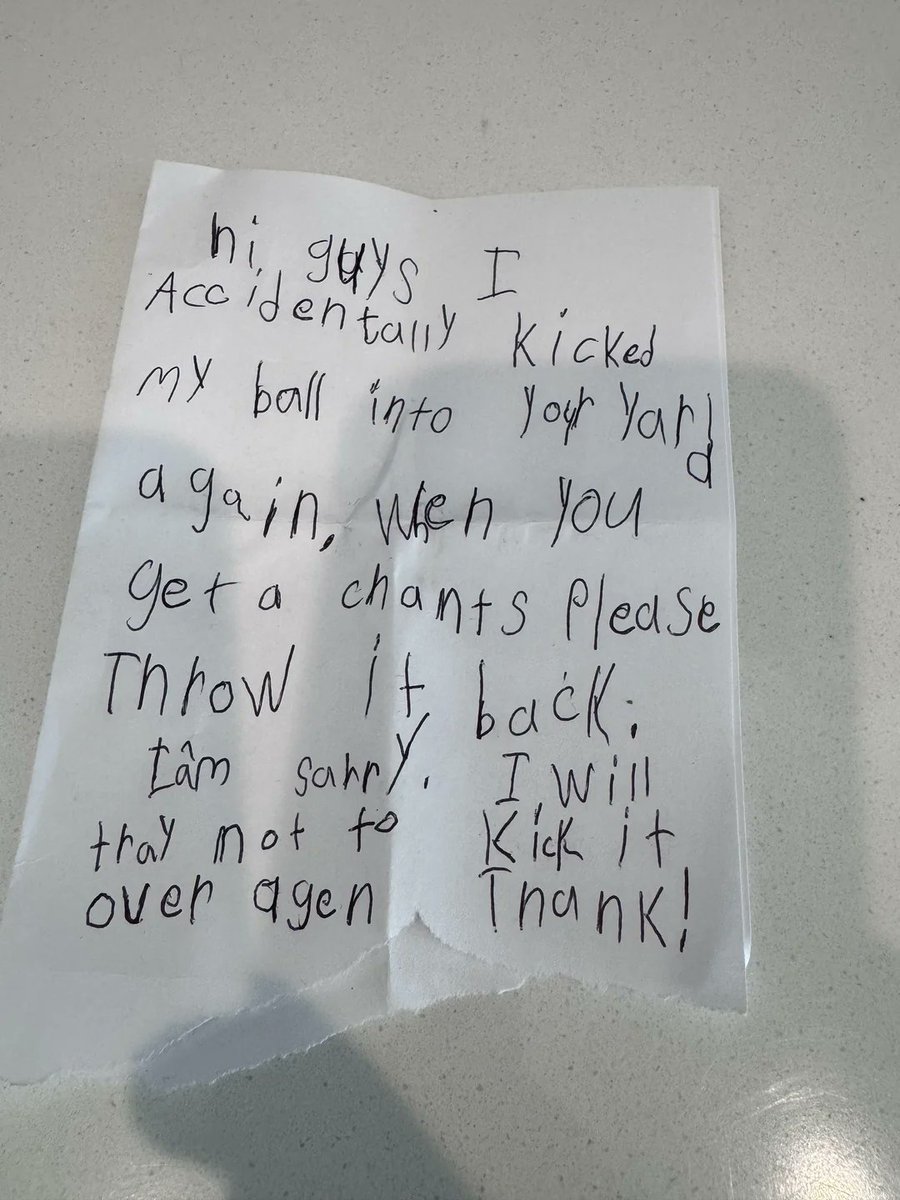 hi guys I
Accidentally kicked
my ball into your yard
again, when you
get a chants Please
Throw it back.
Iâm sarry. I will
tray not to kick it
over agen Thank!